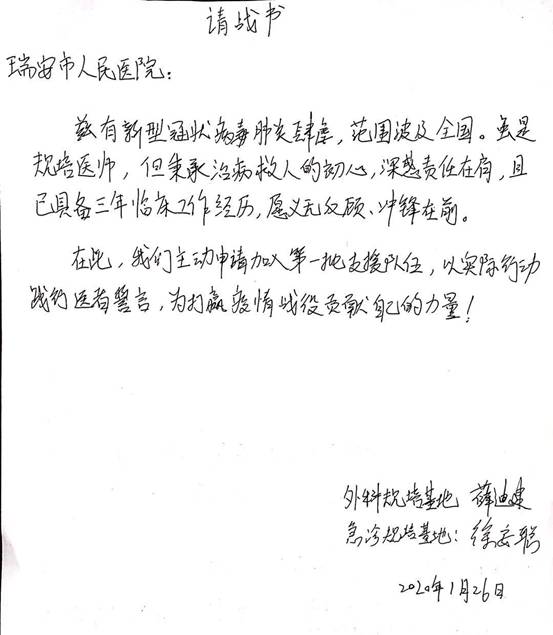 请战书
瑞安市人民医院：
兹有新型冠状病毒肺炎肆虐，范围波及全国。虽是
规培医师，但秉承治病救人的初心，深感责任在肩，且
已具备三年临床工作经历，愿义无反顾、冲锋在前。
在此，我们主动申请加入第一批支援队伍，以实际行动
践行医者誓言，为打赢疫情战役贡献自己的力量！
外科规培基地 薛迪建
急诊规培基地：徐
2020年1月26日